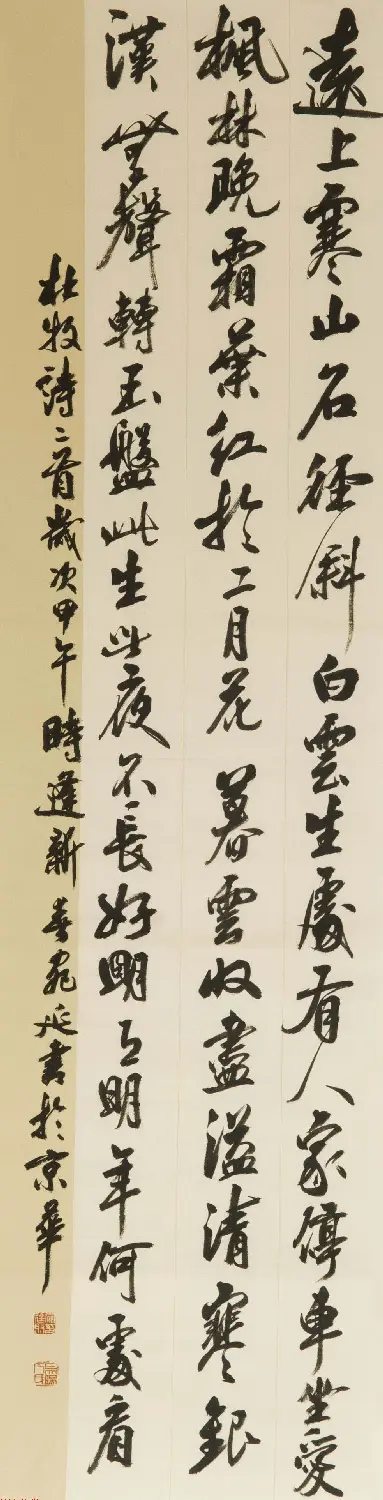 遠上寒山石徑斜白雲生處有人家停車坐愛
楓林晚霜葉紅於二月花暮雲收盡溢清寒銀
漢無聲轉玉盤此生此夜不長好明月明年何處看
杜牧詩二首歲次甲午時逢新春宛延書於京華